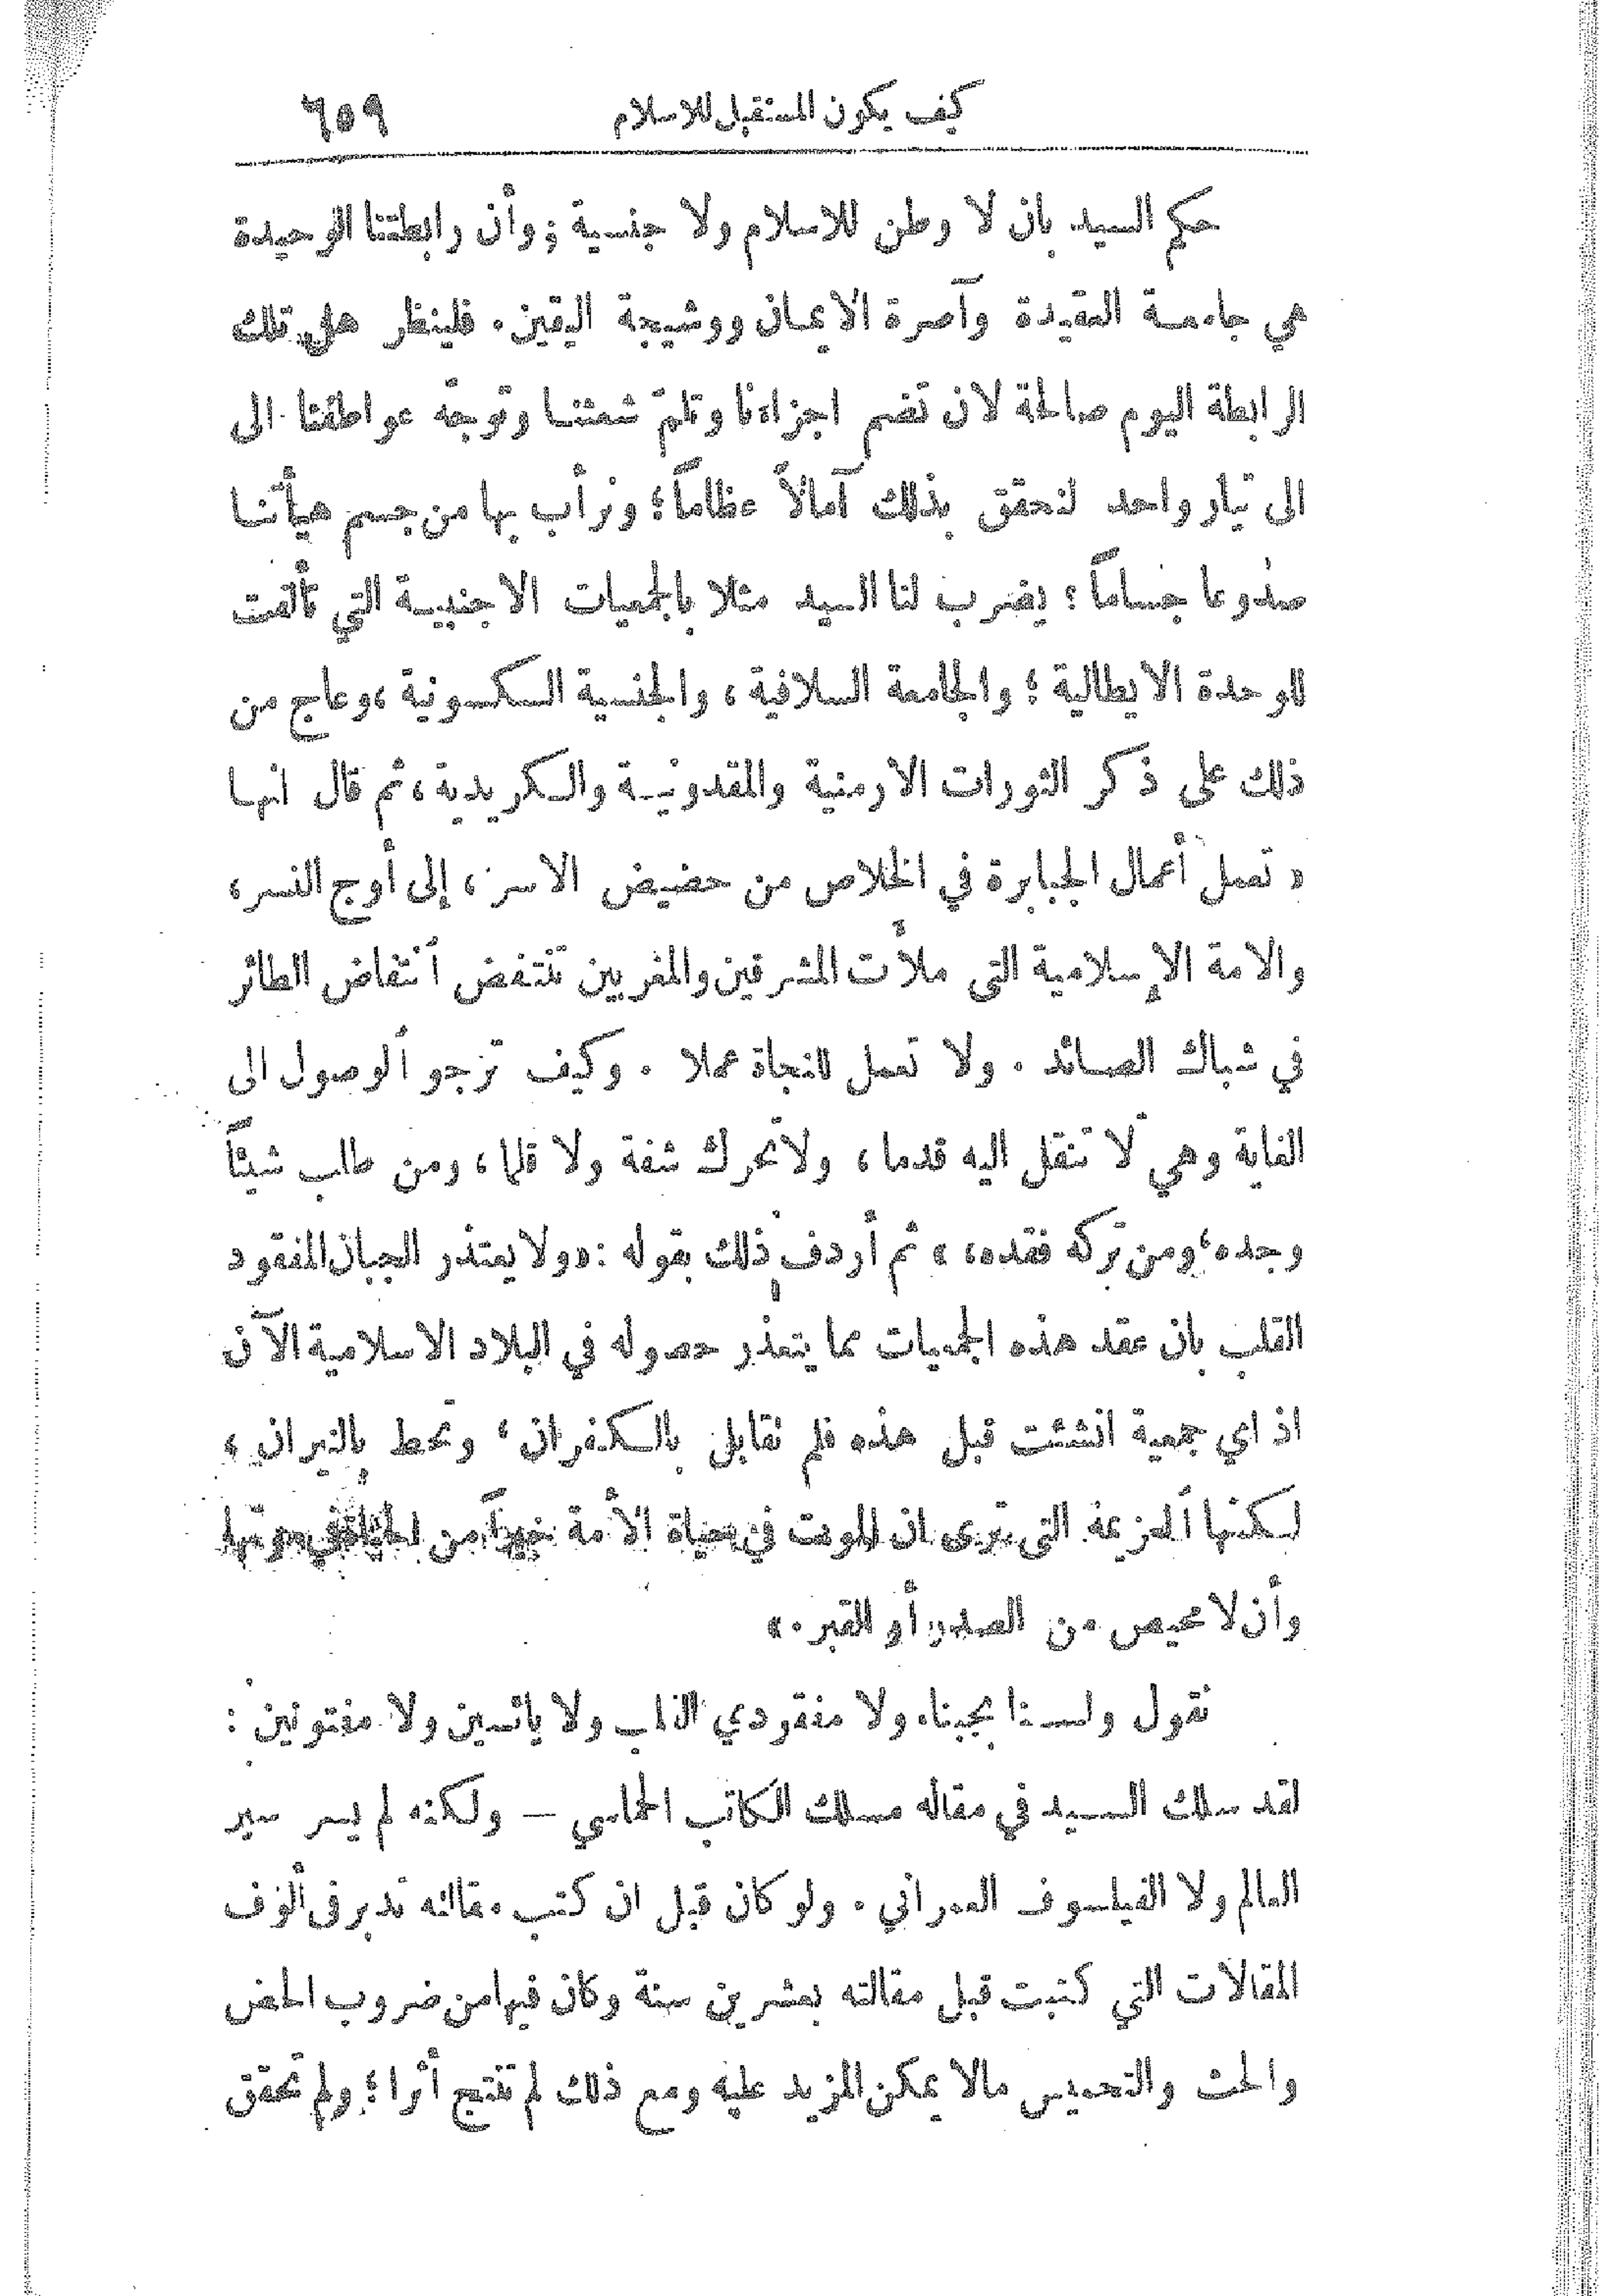 كيف يكون المستقبل للاسلام ٦٥٩
حكم السيد بان لا وطن للاسلام ولا جنسية ; وأن رابطتنا الوحيدة
هي جامعة العقيدة وآصرة الايمان ووشيجة اليقين . فلينظر هل تلك
الرابطة اليوم صالحة لان تضم اجزاءنا وتلمّ شعثنا وتوجّه عواطفنا الى
الى تيار واحد لنحقق بذلك آمالاً عظاماً ؛ ونرأب بها من جسم هيأتنا
صدوعا جساماً ؛ يضرب لنا السيد مثلا بالجمعيات الاجنبية التي تألفت
للوحدة الايطالية ؛ والجامعة السلافية ، والجنسية السكسونية ، وعاج من
ذلك على ذكر الثورات الارمنية والمقدونية والكريدية ، ثم قال انها
« تعمل أعمال الجبابرة في الخلاص من حضيض الاسر ، إلى أوج النسر ،
والامة الإسلامية التي ملأت المشرقين والمغربين تنتفض أنتفاض الطائر
في شباك الصائد . ولا تعمل للنجاة عملا . وكيف ترجو الوصول الى
الغاية وهي لا تنقل اليه قدما ، ولا تحرك شفة ولا قلما ، ومن طلب شيئاً
وجده ، ومن تركه فقده ، » ثم أردف ذلك بقوله : « ولا يعتذر الجبان المفقود
القلب بان عقد هذه الجمعيات مما يتعذر حصوله في البلاد الاسلامية الآن
اذ اي جمعية انشئت قبل هذه فلم تقابل بالكفران ، وتحط بالنيران ،
لكنها العزيمة التي ترى ان الموت في حياة الأمة خيراً من الحياة في موتها
وأن لا محيص من الصدر أو القبر . »
نقول ولسنا بجبناء ولا مفقودي القلب ولا يائسين ولا مفتونين :
لقد سلك السيد في مقاله مسلك الكاتب الحماسي — ولكنه لم يسر سير
العالم ولا الفيلسوف العمراني . ولو كان قبل ان كتب مقالته تدبر في ألوف
المقالات التي كتبت قبل مقالته بعشرين سنة وكان فيها من ضروب الحض
والحث والتحميس مالا يمكن المزيد عليه ومع ذلك لم تنتج أثرا ؛ ولم تحقق